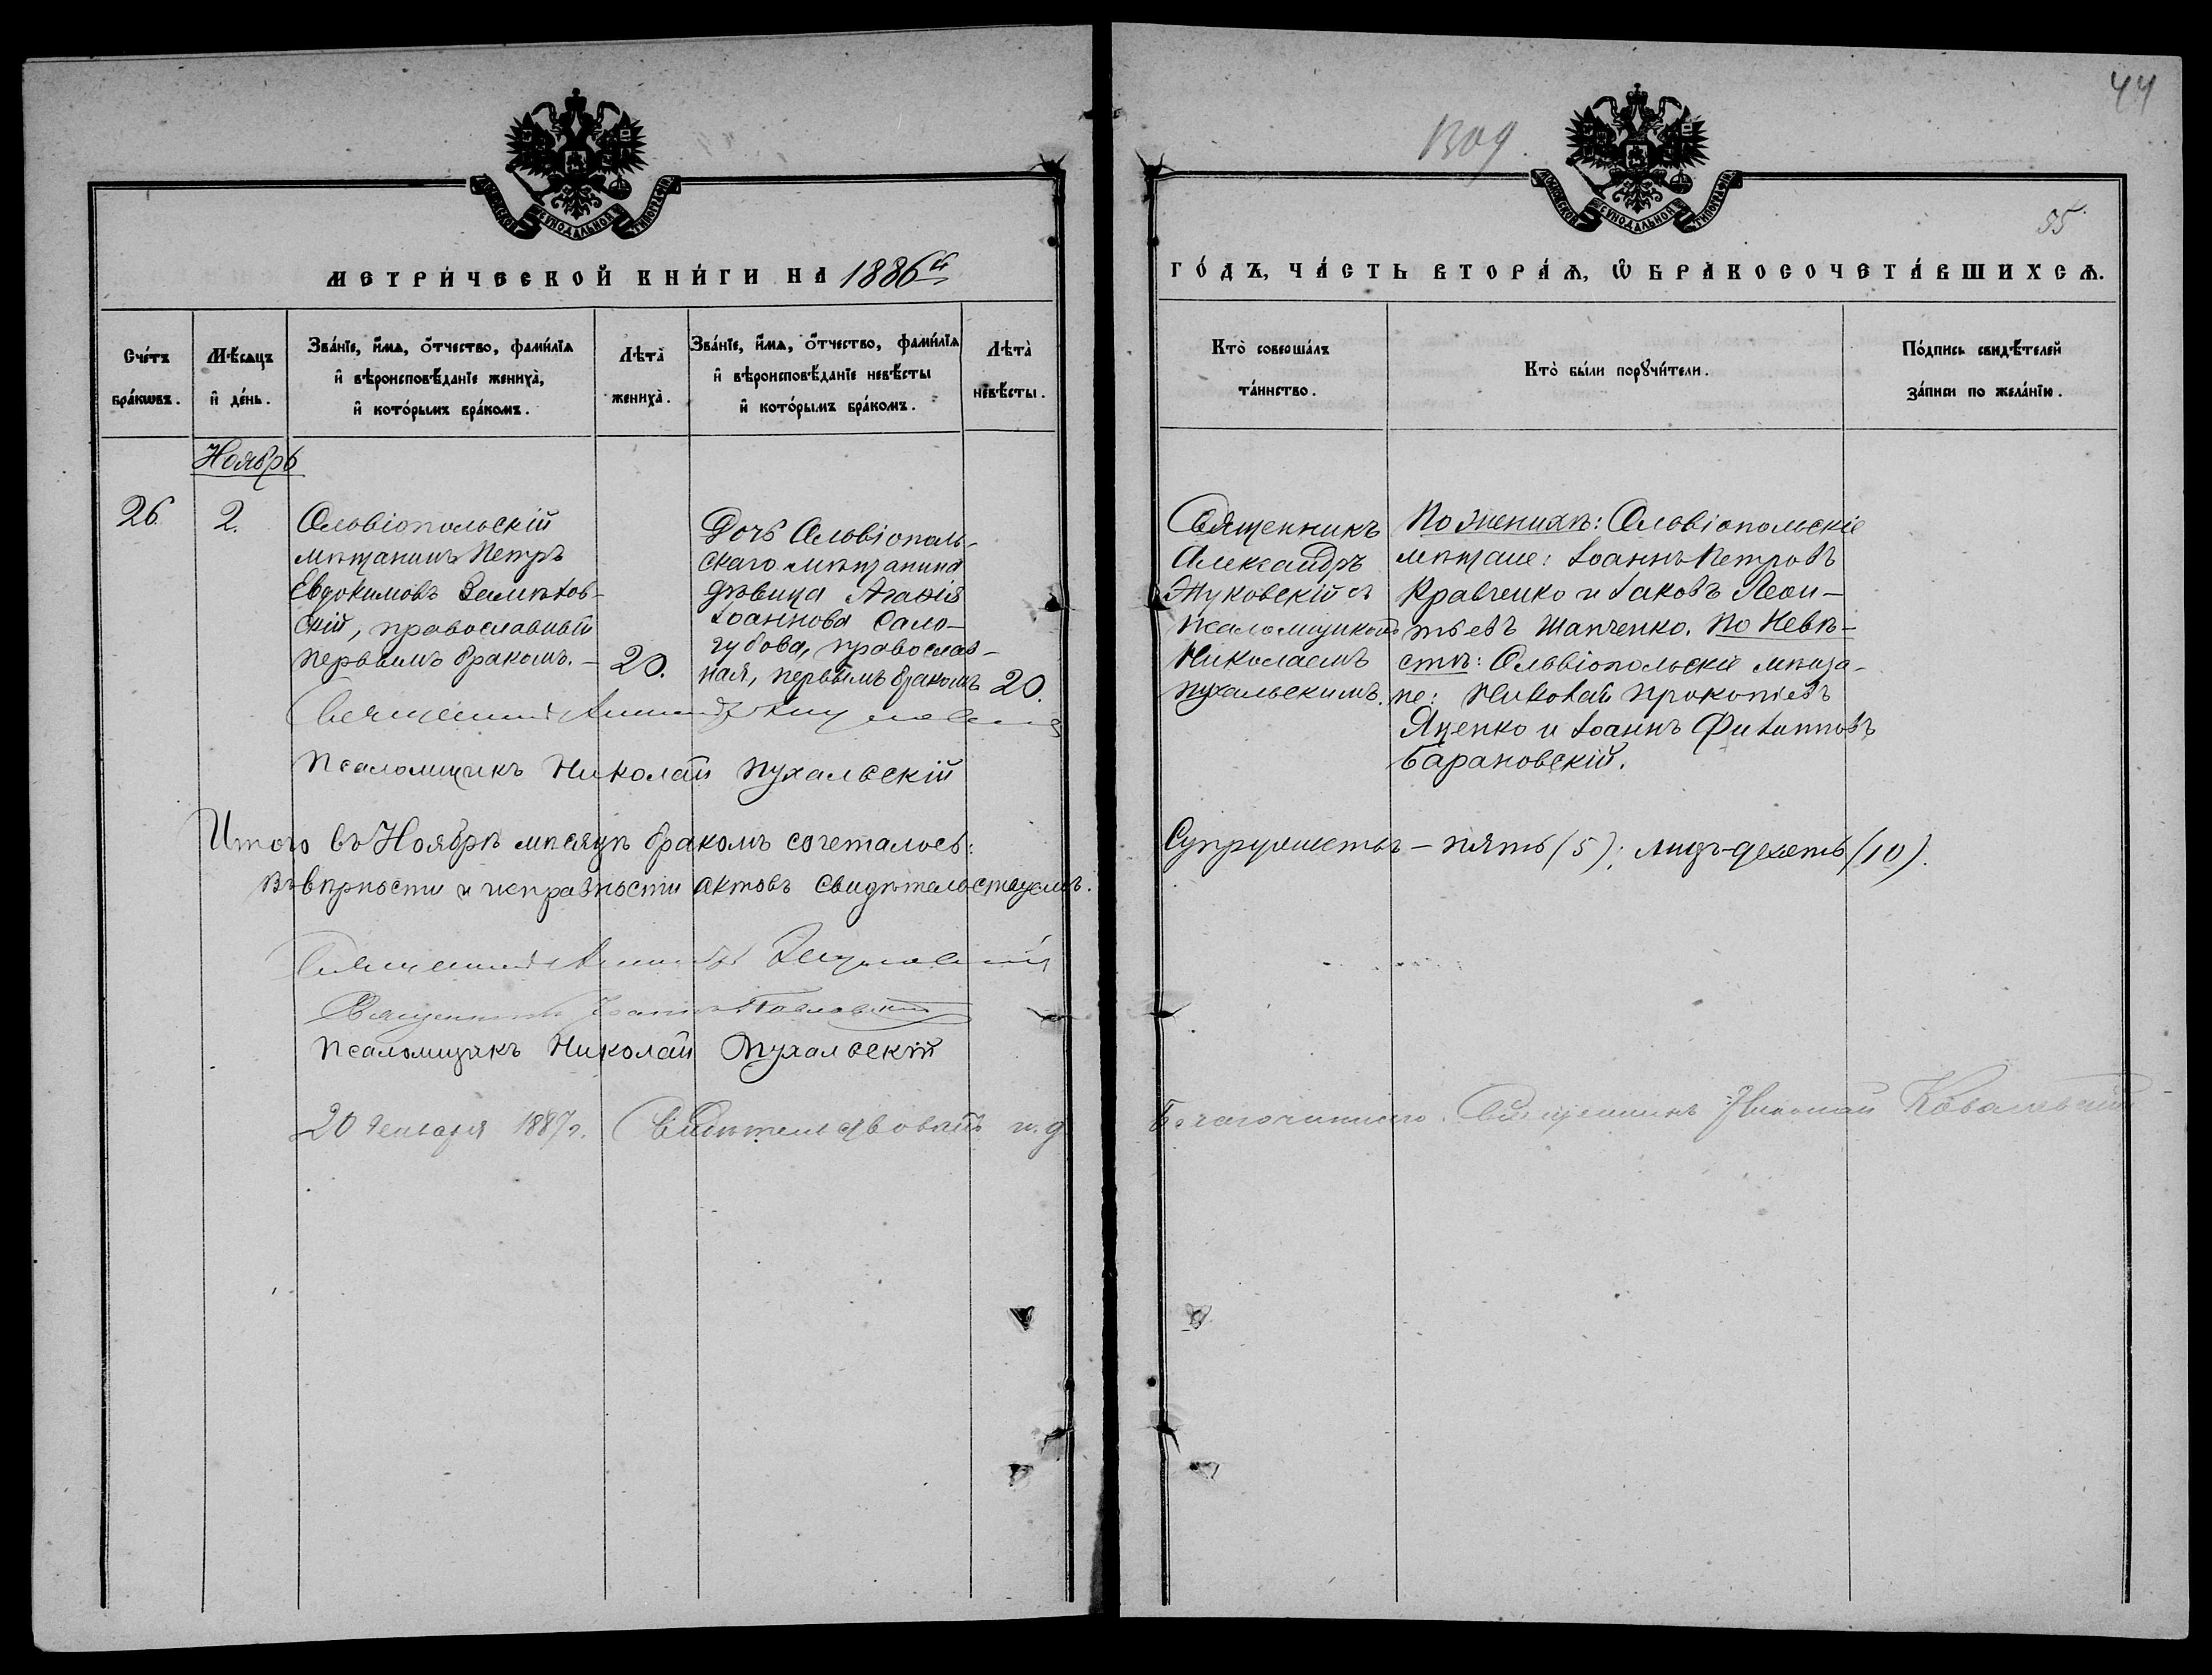 44
1309.
55
МОСКОВСКОЙ СѴНОДАЛЬНОЙ ТИПОГРАФІИ
МОСКОВСКОЙ СѴНОДАЛЬНОЙ ТИПОГРАФІИ
МЕТРИ́ЧЕСКОЙ КНИ́ГИ НА 1886й
ГО́ДЪ, ЧА́СТЬ ВТОРА́Ѧ, Ѽ БРАКОСОЧЕТА́ВШИХСѦ.
Сче́тъ
бра́кѡвъ.
Мѣ́сѧцъ
и҆ де́нь.
Зва́нїе, и҆́мѧ, ѻ҆́тчество, фами́лїѧ
и҆ вѣроисповѣ́данїе жениха̀,
и҆ кото́рымъ бра́комъ.
Лѣта̀
жениха̀.
Зва́нїе, и҆́мѧ, ѻ҆́тчество, фами́лїѧ
и҆ вѣроисповѣ́данїе невѣ́сты
и҆ кото́рымъ бра́комъ.
Лѣта̀
невѣ́сты.
Кто̀ соверша́лъ
та́инство.
Кто̀ бы́ли порꙋчи́тели.
По́дпись свидѣ́телей
за́писи по жела́нїю.
Ноябрь
26.
2.
Ольвіопольскій
мѣщанинъ Петръ
Евдокимовъ
скій, православный
первымъ бракомъ. –
20.
Дочь Ольвіополь-
скаго мѣщанина
дѣвица Агаѳія
Іоаннова Сало-
губова, православ-
ная, первымъ бракомъ
20.
Священникъ
Александръ
Жуковскій съ
псаломщикомъ
Николаемъ
Пухальскимъ.
По женихѣ: Ольвіопольскіе
мѣщане: Іоаннъ Петровъ
Кравченко и Іаковъ Леон-
тьевъ Шапченко. По Невѣ-
стѣ: Ольвіопольскіе мѣща-
не: Николай Прокопіевъ
Яценко и Іоаннъ Филипповъ
Барановскій.
Священникъ Александръ Жуковскій
Псаломщикъ Николай Пухальскій
Итого въ Ноябрѣ мѣсяцѣ бракомъ сочеталось:
Супружествъ – пять (5); лицъ-десять (10).
Въ вѣрности и исправности актовъ свидѣтельствуемъ.
Священникъ Александръ Жуковскій
Священникъ Іоаннъ Павловскій
Псаломщикъ Николай Пухальскій
20 Генваря 1887 г. Свидѣтельствовалъ и. д.
Благочиннаго Священникъ Николай Ковалевскій